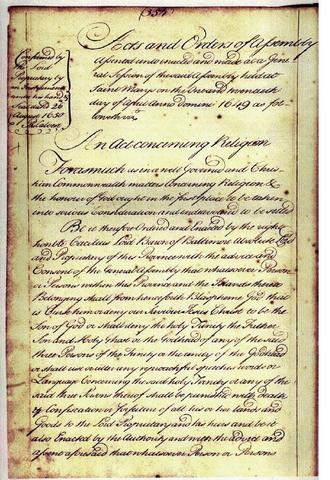 (354)
Acts and Orders of Assembly
assented unto enacted and made at a Gene
ral Session of the said Assembly held at
Saint Marys on the one and twentieth
day of Aprill Anno Domini 1649 as fol
loweth viz
Confirmed by
the Lord
Proprietary by
an instrument
under his hand &
Seale dated 26
August 1650
An Act concerning Religion
Forasmuch as in a well Governed and Chris
tian Commonwealth matters concerning Religion &
the honour of God ought in the first place to be taken
into serious Consideration and endeavoured to be settled
Be it therefore Ordered and Enacted by the right
honble Cecilius Lord Baron of Baltemore absolute Lord
and Proprietary of this Province with the advice and
Consent of this Generall Assembly that whatsoever Person
or Persons within this Province and the Islands thereto
Belonging shall from henceforth Blaspheme God that
is Curse him or deny our Saviour Jesus Christ to be the
Son of God or shall deny the holy Trinity the Father
Son and Holy Ghost or the Godhead of any of the said
three Persons of the Trinity or the unity of the Godhead
or shall use or utter any reproachful speeches words or
Language Concerning the said holy Trinity or any of the
said three Persons thereof shall be punished with Death
& Confiscation or forfeiture of all his or her lands and
Goods to the Lord Proprietary and his heirs and be it
also Enacted by the Authority and with the advice and
assent aforesaid that whatsoever Person or Persons